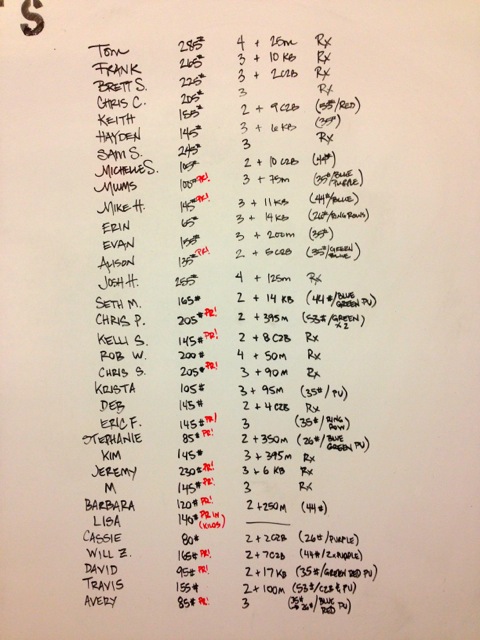 S
TOM 285# 4 + 25m Rx
FRANK 265# 3 + 10 KB Rx
BRETT S. 225# 3 + 2C2B Rx
CHRIS C. 205# 3 Rx
KEITH 155# 2 + 9C2B (35#/RED)
HAYDEN 145# 3 + 6 KB (35#)
SAM S. 245# 3 Rx
MICHELLE S. 105# 2 + 10 C2B (44#)
MUMS 100# PR! 3 + 75m (35#/BLUE PURPLE)
MIKE H. 145# PR! 3 + 11 KB (44#/BLUE)
ERIN 65# 3 + 14 KB (26#/RING ROWS)
EVAN 155# 3 + 200m (35#)
ALISON 135# PR! 2 + 5C2B (35#/GREEN BLUE)
JOSH H. 255# 4 + 125m Rx
SETH M. 165# 2 + 14 KB (44#/BLUE GREEN PU)
CHRIS P. 205# PR! 2 + 395m (53#/GREEN x 2)
KELLI S. 145# PR! 2 + 8 C2B Rx
ROB W. 200# 4 + 50m Rx
CHRIS S. 205# PR! 3 + 90m Rx
KRISTA 105# 3 + 95m (35#/PU)
DEB 145# 2 + 4 C2B Rx
ERIC F. 145# PR! 3 (35#/RING ROW)
STEPHANIE 85# PR! 2 + 350m (26#/BLUE GREEN PU)
KIM 145# 3 + 395m Rx
JEREMY 230# PR! 3 + 6 KB Rx
M 145# PR! 3 Rx
BARBARA 120# PR! 2 + 250m (44#)
LISA 140# PR IN (KILOS)
CASSIE 80# 2 + 2C2B (26#/PURPLE)
WILL Z. 165# PR! 2 + 7C2B (44#/2xPURPLE)
DAVID 95# PR! 2 + 17 KB (35#/GREEN RED PU)
TRAVIS 155# 2 + 100m (53#/C2B & PU)
AVERY 85# PR! 3 (35# 26#/BLUE RED PU)